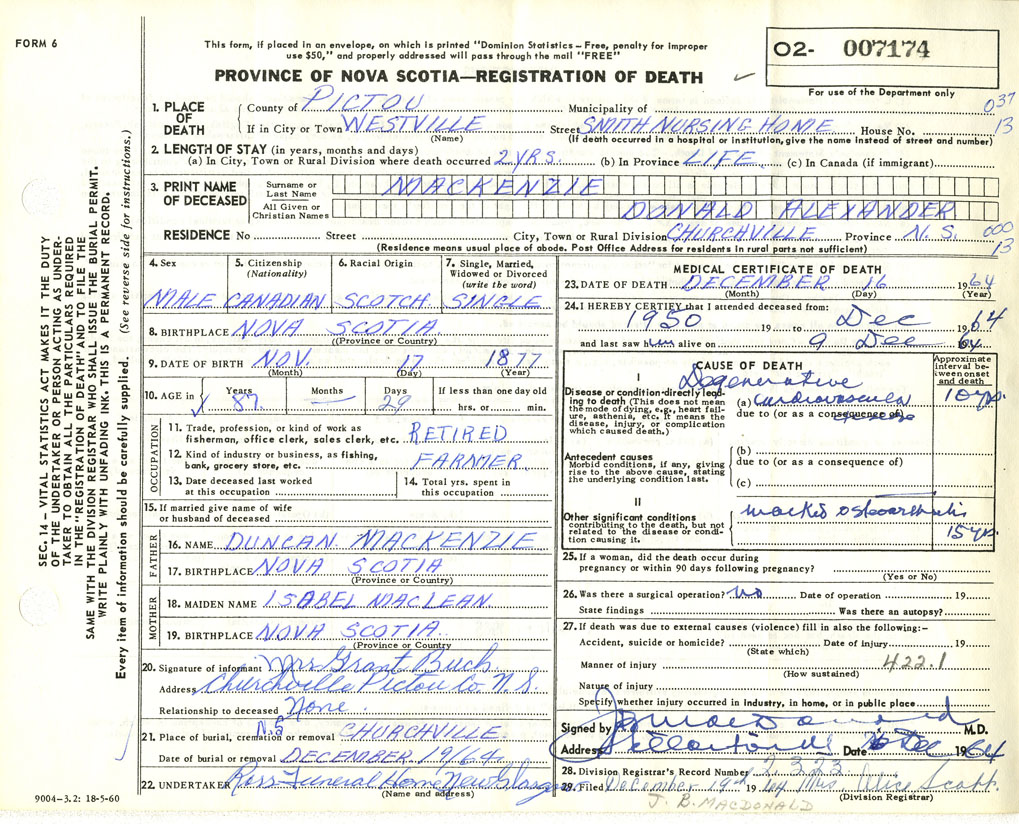 FORM 6
This form, if placed in an envelope, on which is printed "Dominion Statistics – Free, penalty for improper
use $50," and properly addressed will pass through the mail "FREE"
PROVINCE OF NOVA SCOTIA—REGISTRATION OF DEATH
O2- 007174
For use of the Department only
SEC. 14 – VITAL STATISTICS ACT MAKES IT THE DUTY
OF THE UNDERTAKER OR PERSON ACTING AS UNDER-
TAKER TO OBTAIN ALL THE PARTICULARS REQUIRED
IN THE "REGISTRATION OF DEATH" AND TO FILE THE
SAME WITH THE DIVISION REGISTRAR WHO SHALL ISSUE THE BURIAL PERMIT.
WRITE PLAINLY WITH UNFADING INK. THIS IS A PERMANENT RECORD.
Every item of information should be carefully supplied. (See reverse side for instructions.)
1. PLACE OF DEATH
County of PICTOU Municipality of 037
If in City or Town WESTVILLE Street SMITH NURSING HOME House No. 13
(Name) (If death occurred in a hospital or institution, give the name instead of street and number)
2. LENGTH OF STAY (in years, months and days)
(a) In City, Town or Rural Division where death occurred 2 YRS. (b) In Province LIFE (c) In Canada (if immigrant)
3. PRINT NAME OF DECEASED
Surname or Last Name MACKENZIE
All Given or Christian Names DONALD ALEXANDER
RESIDENCE No Street City, Town or Rural Division CHURCHVILLE Province N. S. 000
(Residence means usual place of abode. Post Office Address for residents in rural parts not sufficient) 13
4. Sex MALE
5. Citizenship (Nationality) CANADIAN
6. Racial Origin SCOTCH
7. Single, Married, Widowed or Divorced (write the word) SINGLE
8. BIRTHPLACE NOVA SCOTIA
(Province or Country)
9. DATE OF BIRTH NOV. 17 1877
(Month) (Day) (Year)
10. AGE in Years 87 Months — Days 29 If less than one day old hrs. or min.
OCCUPATION
11. Trade, profession, or kind of work as
fisherman, office clerk, sales clerk, etc. RETIRED
12. Kind of industry or business, as fishing,
bank, grocery store, etc. FARMER
13. Date deceased last worked
at this occupation
14. Total yrs. spent in
this occupation
15. If married give name of wife
or husband of deceased
FATHER
16. NAME DUNCAN MACKENZIE
17. BIRTHPLACE NOVA SCOTIA
(Province or Country)
MOTHER
18. MAIDEN NAME ISABEL MACLEAN
19. BIRTHPLACE NOVA SCOTIA
(Province or Country
20. Signature of informant Mrs Grant
Address Churchville Pictou Co. N. S.
Relationship to deceased None.
21. Place of burial, cremation or removal CHURCHVILLE N.S
Date of burial or removal DECEMBER 19/64
22. UNDERTAKER Ross Funeral Home New Glasgow
(Name and address)
9004–3.2: 18-5-60
MEDICAL CERTIFICATE OF DEATH
23. DATE OF DEATH DECEMBER 16 1964
(Month) (Day) (Year)
24. I HEREBY CERTIFY that I attended deceased from:
1950 19 to Dec 1964
and last saw him alive on 9 Dec 64
CAUSE OF DEATH
Approximate interval between onset and death
I
Disease or condition directly leading to death (This does not mean the mode of dying, e.g., heart failure, asthenia, etc. It means the disease, injury, or complication which caused death.)
Degenerative
(a) cardiovascular 10 yrs.
due to (or as a consequence of)
Antecedent causes
Morbid conditions, if any, giving rise to the above cause, stating the underlying condition last.
(b)
due to (or as a consequence of)
(c)
II
Other significant conditions
contributing to the death, but not related to the disease or condition causing it.
marked osteoarthritis 15 yrs.
25. If a woman, did the death occur during
pregnancy or within 90 days following pregnancy?
(Yes or No)
26. Was there a surgical operation? No Date of operation 19
State findings Was there an autopsy?
27. If death was due to external causes (violence) fill in also the following:–
Accident, suicide or homicide? Date of injury 19
(State which)
Manner of injury 422.1
(How sustained)
Nature of injury
Specify whether injury occurred in industry, in home, or in public place
Signed by MacDonald M.D.
Address Stellarton Date Dec 1964
28. Division Registrar's Record Number 2323
29. Filed December 19th 1964 Mrs Alice Scott.
(Division Registrar)
J. B. MACDONALD